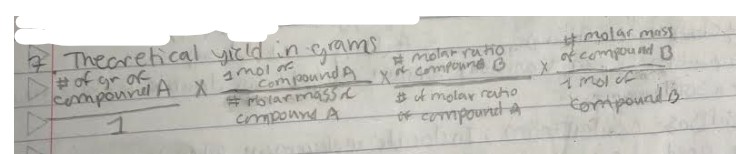 7. Theoretical yield in grams
# of gr of compound A / 1 X 1 mol of compound A / # molar mass of compound A X # molar ratio of compound B / # of molar ratio of compound A X # molar mass of compound B / 1 mol of compound B